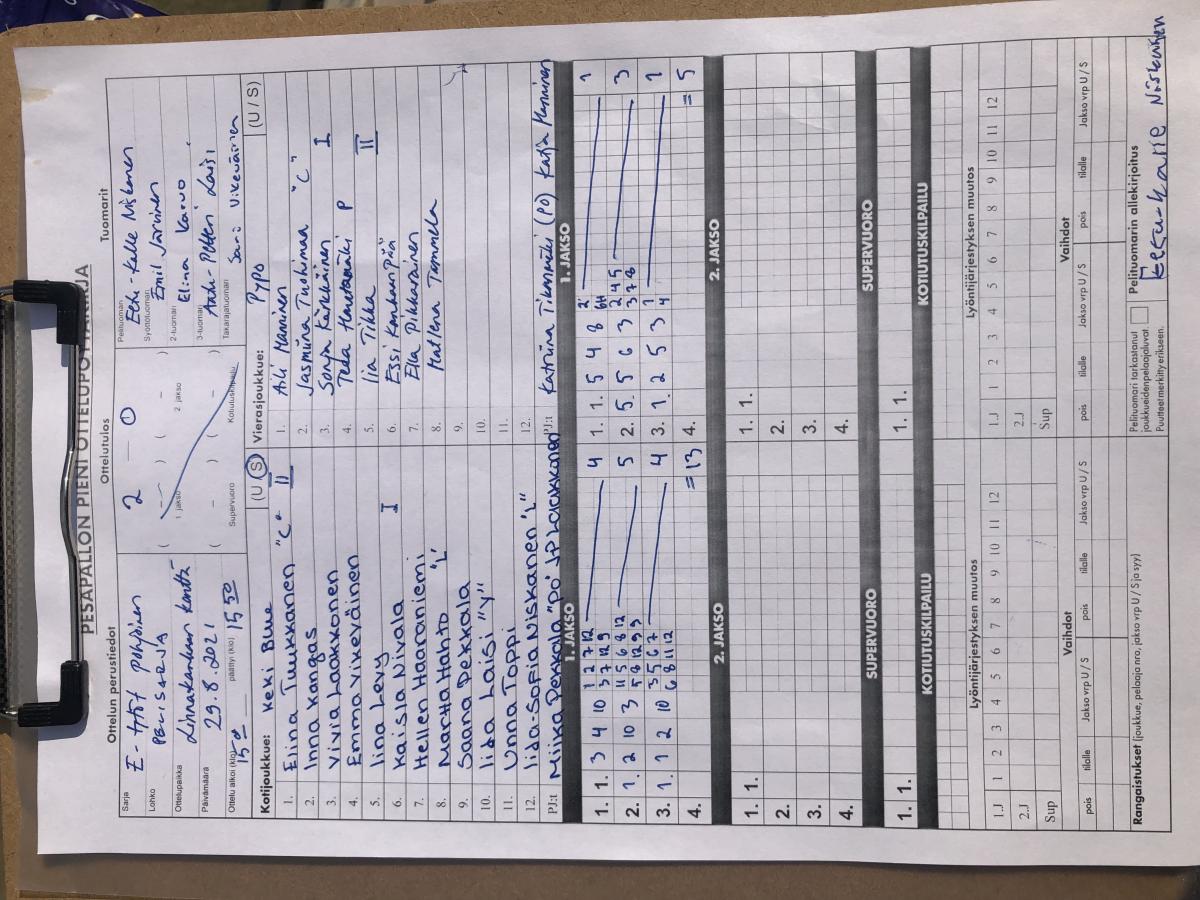 PESÄPALLON PIENI OTTELUPÖYTÄKIRJA
Ottelun perustiedot
Sarja E-tytöt pohjoinen
Lohko PERUSSARJA
Ottelupaikka Linnakankaan kenttä
Päivämäärä 29.8.2021
Ottelu alkoi (klo) 15 00 päättyi (klo) 15 50
Ottelutulos
2 — 0
( – ) ( – )
1 jakso 2 jakso
( – ) ( – )
Supervuoro Kotiutuskilpailu
Tuomarit
Pelituomari Eetu-Kalle Niskanen
Syöttötuomari Emil Järvinen
2-tuomari Elina Karvo
3-tuomari Antti-Petteri Laisi
Takarajatuomari Sani Vikeväinen
Kotijoukkue: Keki Blue (U / S)
1. Elina Tuukkanen "C" II
2. Inna Kangas
3. Vivia Laakkonen
4. Emma Vikeväinen
5. Iina Levy
6. Kaisla Nivala I
7. Hellen Haaraniemi
8. Martta Hahto "L"
9. Saana Pekkala
10. Iida Laisi "Y"
11. Unna Toppi
12. Iida-Sofia Niskanen "L"
PJ:t Miika Pekkala "PO" JP Laakkonen
Vierasjoukkue: PyPo (U / S)
1. Aili Manninen
2. Jasmiina Tuohimaa "C"
3. Sonja Kärkkäinen I
4. Teda Hometsmäki P
5. Iia Tikka II
6. Essi Kanhanpää
7. Ella Pikkarainen
8. Matleena Tammela
9.
10.
11.
12.
PJ:t Katriina Tikanmäki (PO) Katja Manninen
1. JAKSO
1. 1. 3 4 10 1 2 7 12 4
3 7 12 9
2. 1. 2 10 3 11 5 6 8 12 5
5 7 8 12 9 3
3. 1 1 2 10 3 5 6 7 4
6 8 11 12
4. =13
1. JAKSO
1. 1. 5 4 8 2 1
6H
2. 5. 5 6 3 2 4 5 3
3 7 8
3. 1. 2 5 3 1 1
4
4. = 5
2. JAKSO
1. 1.
2.
3.
4.
2. JAKSO
1. 1.
2.
3.
4.
SUPERVUORO
1. 1.
SUPERVUORO
1. 1.
KOTIUTUSKILPAILU
KOTIUTUSKILPAILU
Lyöntijärjestyksen muutos
1.J 1 2 3 4 5 6 7 8 9 10 11 12
2.J
Sup
Lyöntijärjestyksen muutos
1.J 1 2 3 4 5 6 7 8 9 10 11 12
2.J
Sup
Vaihdot
pois tilalle Jakso vrp U / S pois tilalle Jakso vrp U / S
Vaihdot
pois tilalle Jakso vrp U / S pois tilalle Jakso vrp U / S
Rangaistukset (joukkue, pelaaja nro, jakso vrp U / S ja syy)
Pelituomari tarkastanut
joukkueidenpelaajaluvat
Puutteet merkity erikseen.
Pelituomarin allekirjoitus
Eetu-Kalle Niskanen